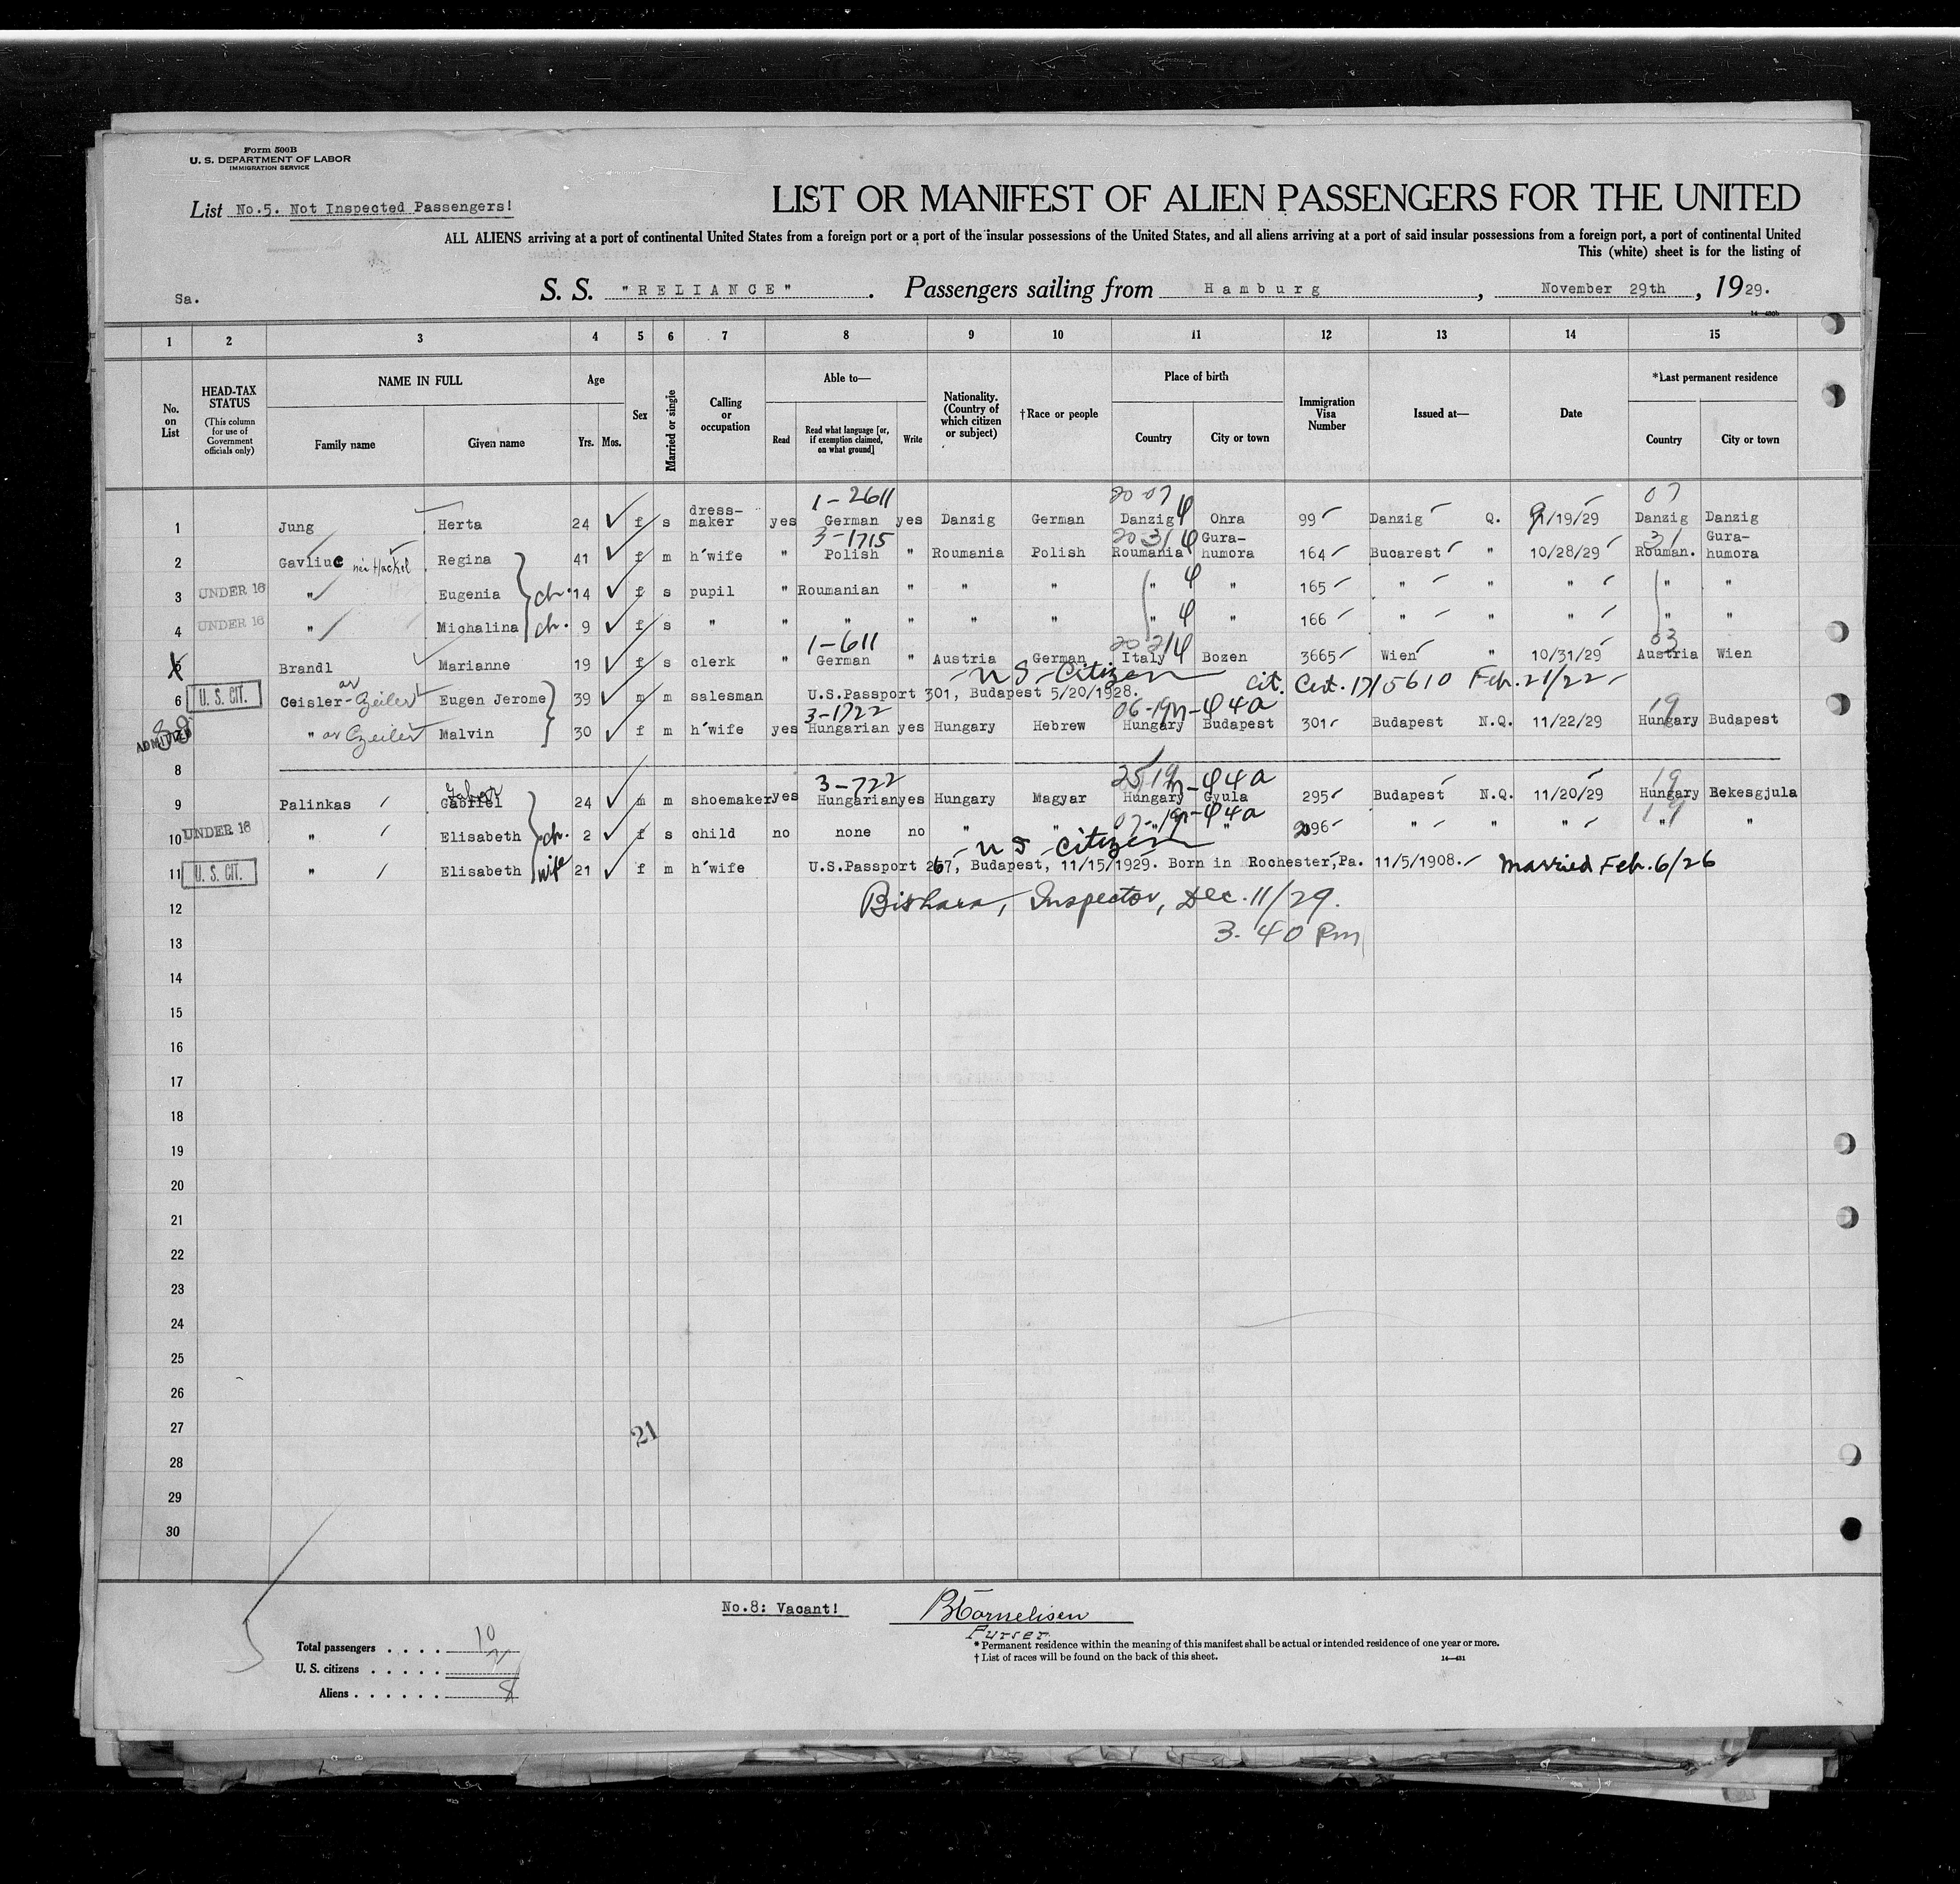 Form 500B
U. S. DEPARTMENT OF LABOR
IMMIGRATION SERVICE
List No.5. Not Inspected Passengers!
LIST OR MANIFEST OF ALIEN PASSENGERS FOR THE UNITED
ALL ALIENS arriving at a port of continental United States from a foreign port or a port of the insular possessions of the United States, and all aliens arriving at a port of said insular possessions from a foreign port, a port of continental United
This (white) sheet is for the listing of
Sa. S. S. "RELIANCE". Passengers sailing from Hamburg, November 29th, 1929.
14—430b
1 2 3 4 5 6 7 8 9 10 11 12 13 14 15
No. on List
HEAD-TAX STATUS (This column for use of Government officials only)
NAME IN FULL Family name Given name
Age Yrs. Mos.
Sex
Married or single
Calling or occupation
Able to— Read Read what language [or, if exemption claimed, on what ground] Write
Nationality. (Country of which citizen or subject)
†Race or people
Place of birth Country City or town
Immigration Visa Number
Issued at—
Date
*Last permanent residence Country City or town
1-2611 20 07 07
1 Jung Herta 24 f s dress-maker yes German yes Danzig German Danzig Ohra 99 Danzig Q. 11/19/29 Danzig Danzig
3-1715 20 31 31
2 Gavliuc née Hackel Regina 41 f m h'wife " Polish " Roumania Polish Roumania Gura-humora 164 Bucarest " 10/28/29 Rouman. Gura-humora
3 UNDER 16 " Eugenia ch. 14 f s pupil " Roumanian " " " " " 165 " " " " "
4 UNDER 16 " Michalina ch. 9 f s " " " " " " " " 166 " " " " "
1-611 20 21 03
5 Brandl Marianne 19 f s clerk " German " Austria German Italy Bozen 3665 Wien " 10/31/29 Austria Wien
U S - Citizen cit. Cert. 1715610 Feb. 21/22
6 U. S. CIT. Ceisler- or Czeiler Eugen Jerome 39 m m salesman U.S.Passport 301, Budapest 5/20/1928.
3-1722 06-19 n-φ4a 19
ADMITTED " or Czeiler Malvin 30 f m h'wife yes Hungarian yes Hungary Hebrew Hungary Budapest 301 Budapest N.Q. 11/22/29 Hungary Budapest
8
Gabor 3-722 25 19 n-φ4a 19
9 Palinkas Gabriel 24 m m shoemaker yes Hungarian yes Hungary Magyar Hungary Gyula 295 Budapest N.Q. 11/20/29 Hungary Bekesgjula
07-19 n-φ4a 19
10 UNDER 16 " Elisabeth ch. 2 f s child no none no " " " " 296 " " " " "
U S - Citizen
11 U. S. CIT. " Elisabeth wife 21 f m h'wife U.S.Passport 267, Budapest, 11/15/1929. Born in Rochester,Pa. 11/5/1908. Married Feb. 6/26
12 Bishara, Inspector, Dec. 11/29.
13 3.40 Pm
14
15
16
17
18
19
20
21
22
23
24
25
26
27 21
28
29
30
No.8: Vacant! Cornelisen
Purser
Total passengers . . . . 10
U. S. citizens . . . . . 2
Aliens . . . . . . 8
* Permanent residence within the meaning of this manifest shall be actual or intended residence of one year or more.
† List of races will be found on the back of this sheet. 14—431